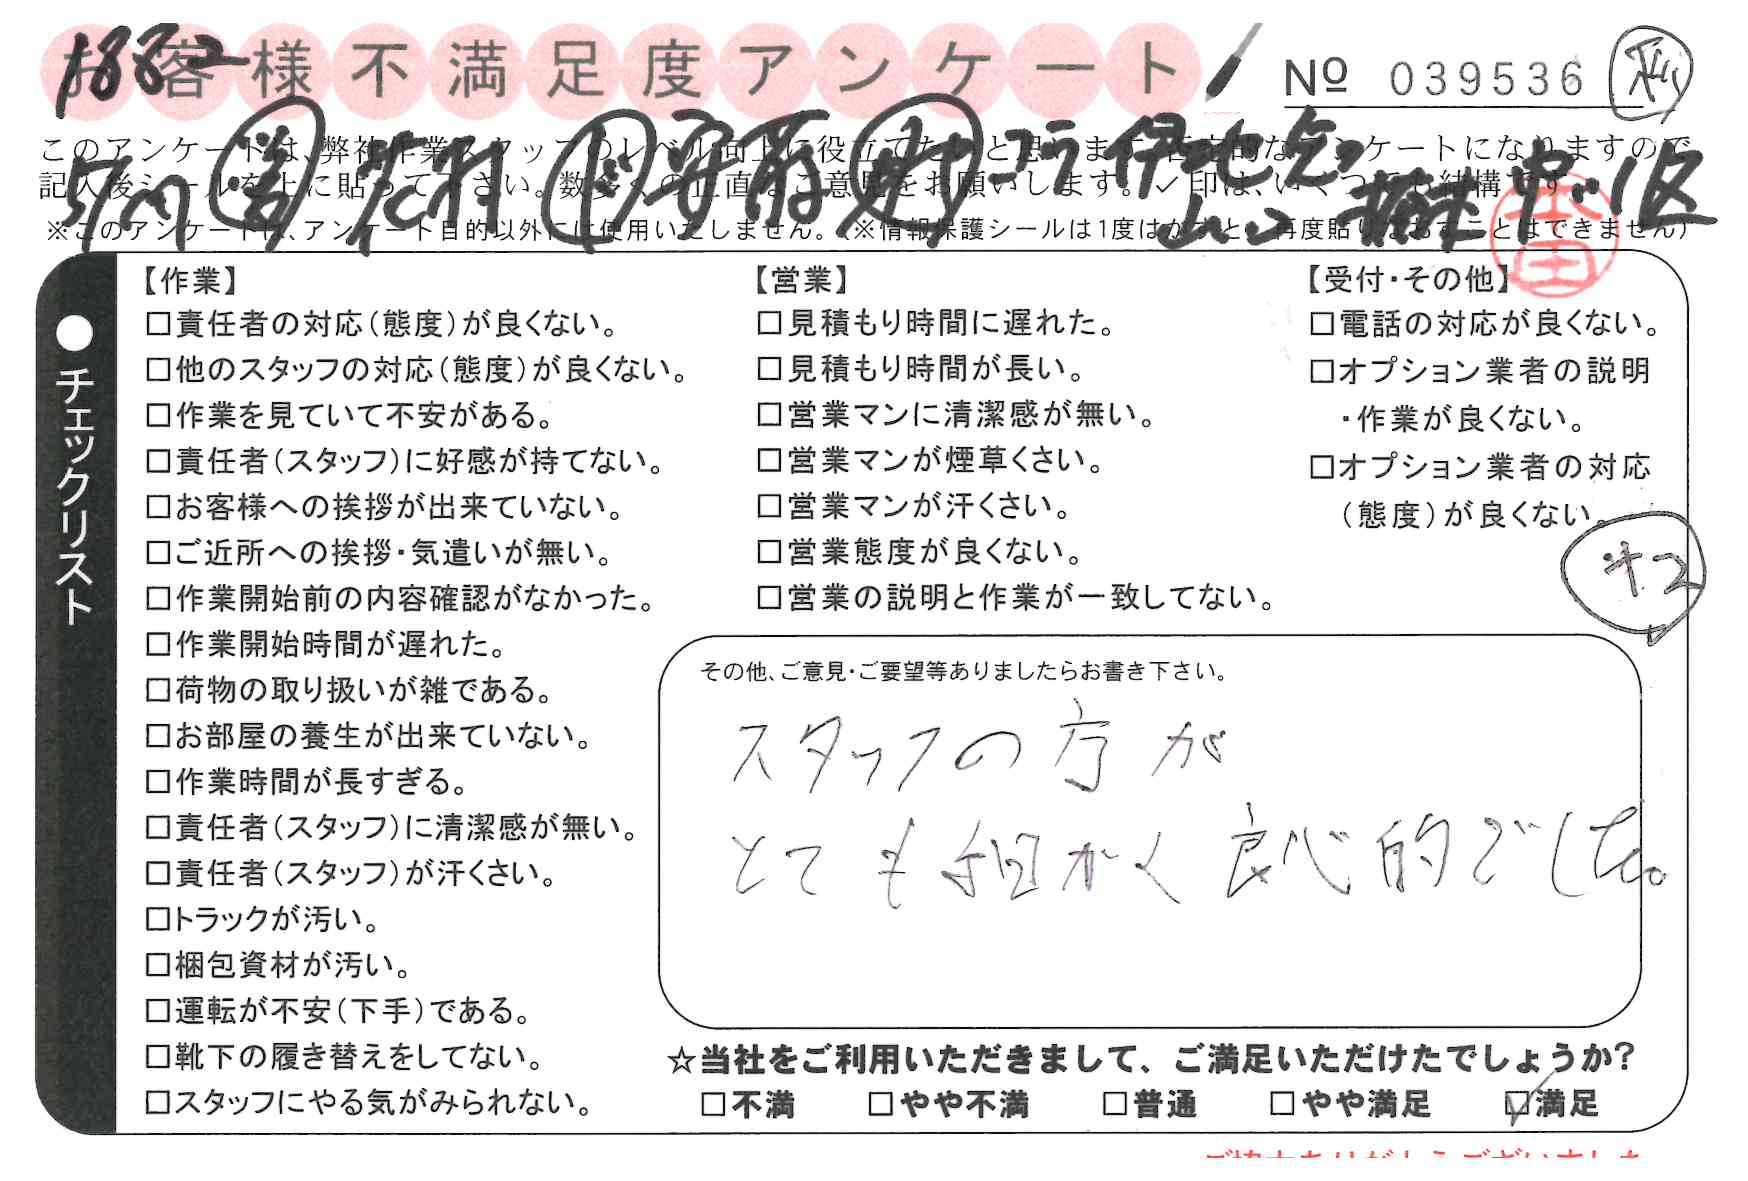 お客様不満足度アンケート
1882
Nº 039536
このアンケートは、弊社作業スタッフのレベル向上に役立てたいと思います。否定的なアンケートになりますので
記入後シールを上に貼って下さい。数多くの正直なご意見をお願いします。✓印は、いくつでも結構です。
※このアンケートは、アンケート目的以外には使用いたしません。(※情報保護シールは1度はがすと、再度貼りなおすことはできません)
チェックリスト
【作業】
□責任者の対応(態度)が良くない。
□他のスタッフの対応(態度)が良くない。
□作業を見ていて不安がある。
□責任者(スタッフ)に好感が持てない。
□お客様への挨拶が出来ていない。
□ご近所への挨拶・気遣いが無い。
□作業開始前の内容確認がなかった。
□作業開始時間が遅れた。
□荷物の取り扱いが雑である。
□お部屋の養生が出来ていない。
□作業時間が長すぎる。
□責任者(スタッフ)に清潔感が無い。
□責任者(スタッフ)が汗くさい。
□トラックが汚い。
□梱包資材が汚い。
□運転が不安(下手)である。
□靴下の履き替えをしてない。
□スタッフにやる気がみられない。
【営業】
□見積もり時間に遅れた。
□見積もり時間が長い。
□営業マンに清潔感が無い。
□営業マンが煙草くさい。
□営業マンが汗くさい。
□営業態度が良くない。
□営業の説明と作業が一致してない。
【受付・その他】
□電話の対応が良くない。
□オプション業者の説明
・作業が良くない。
□オプション業者の対応
(態度)が良くない。
その他、ご意見・ご要望等ありましたらお書き下さい。
スタッフの方が
とても細かく良心的でした。
☆当社をご利用いただきまして、ご満足いただけたでしょうか?
□不満 □やや不満 □普通 □やや満足 ☑満足